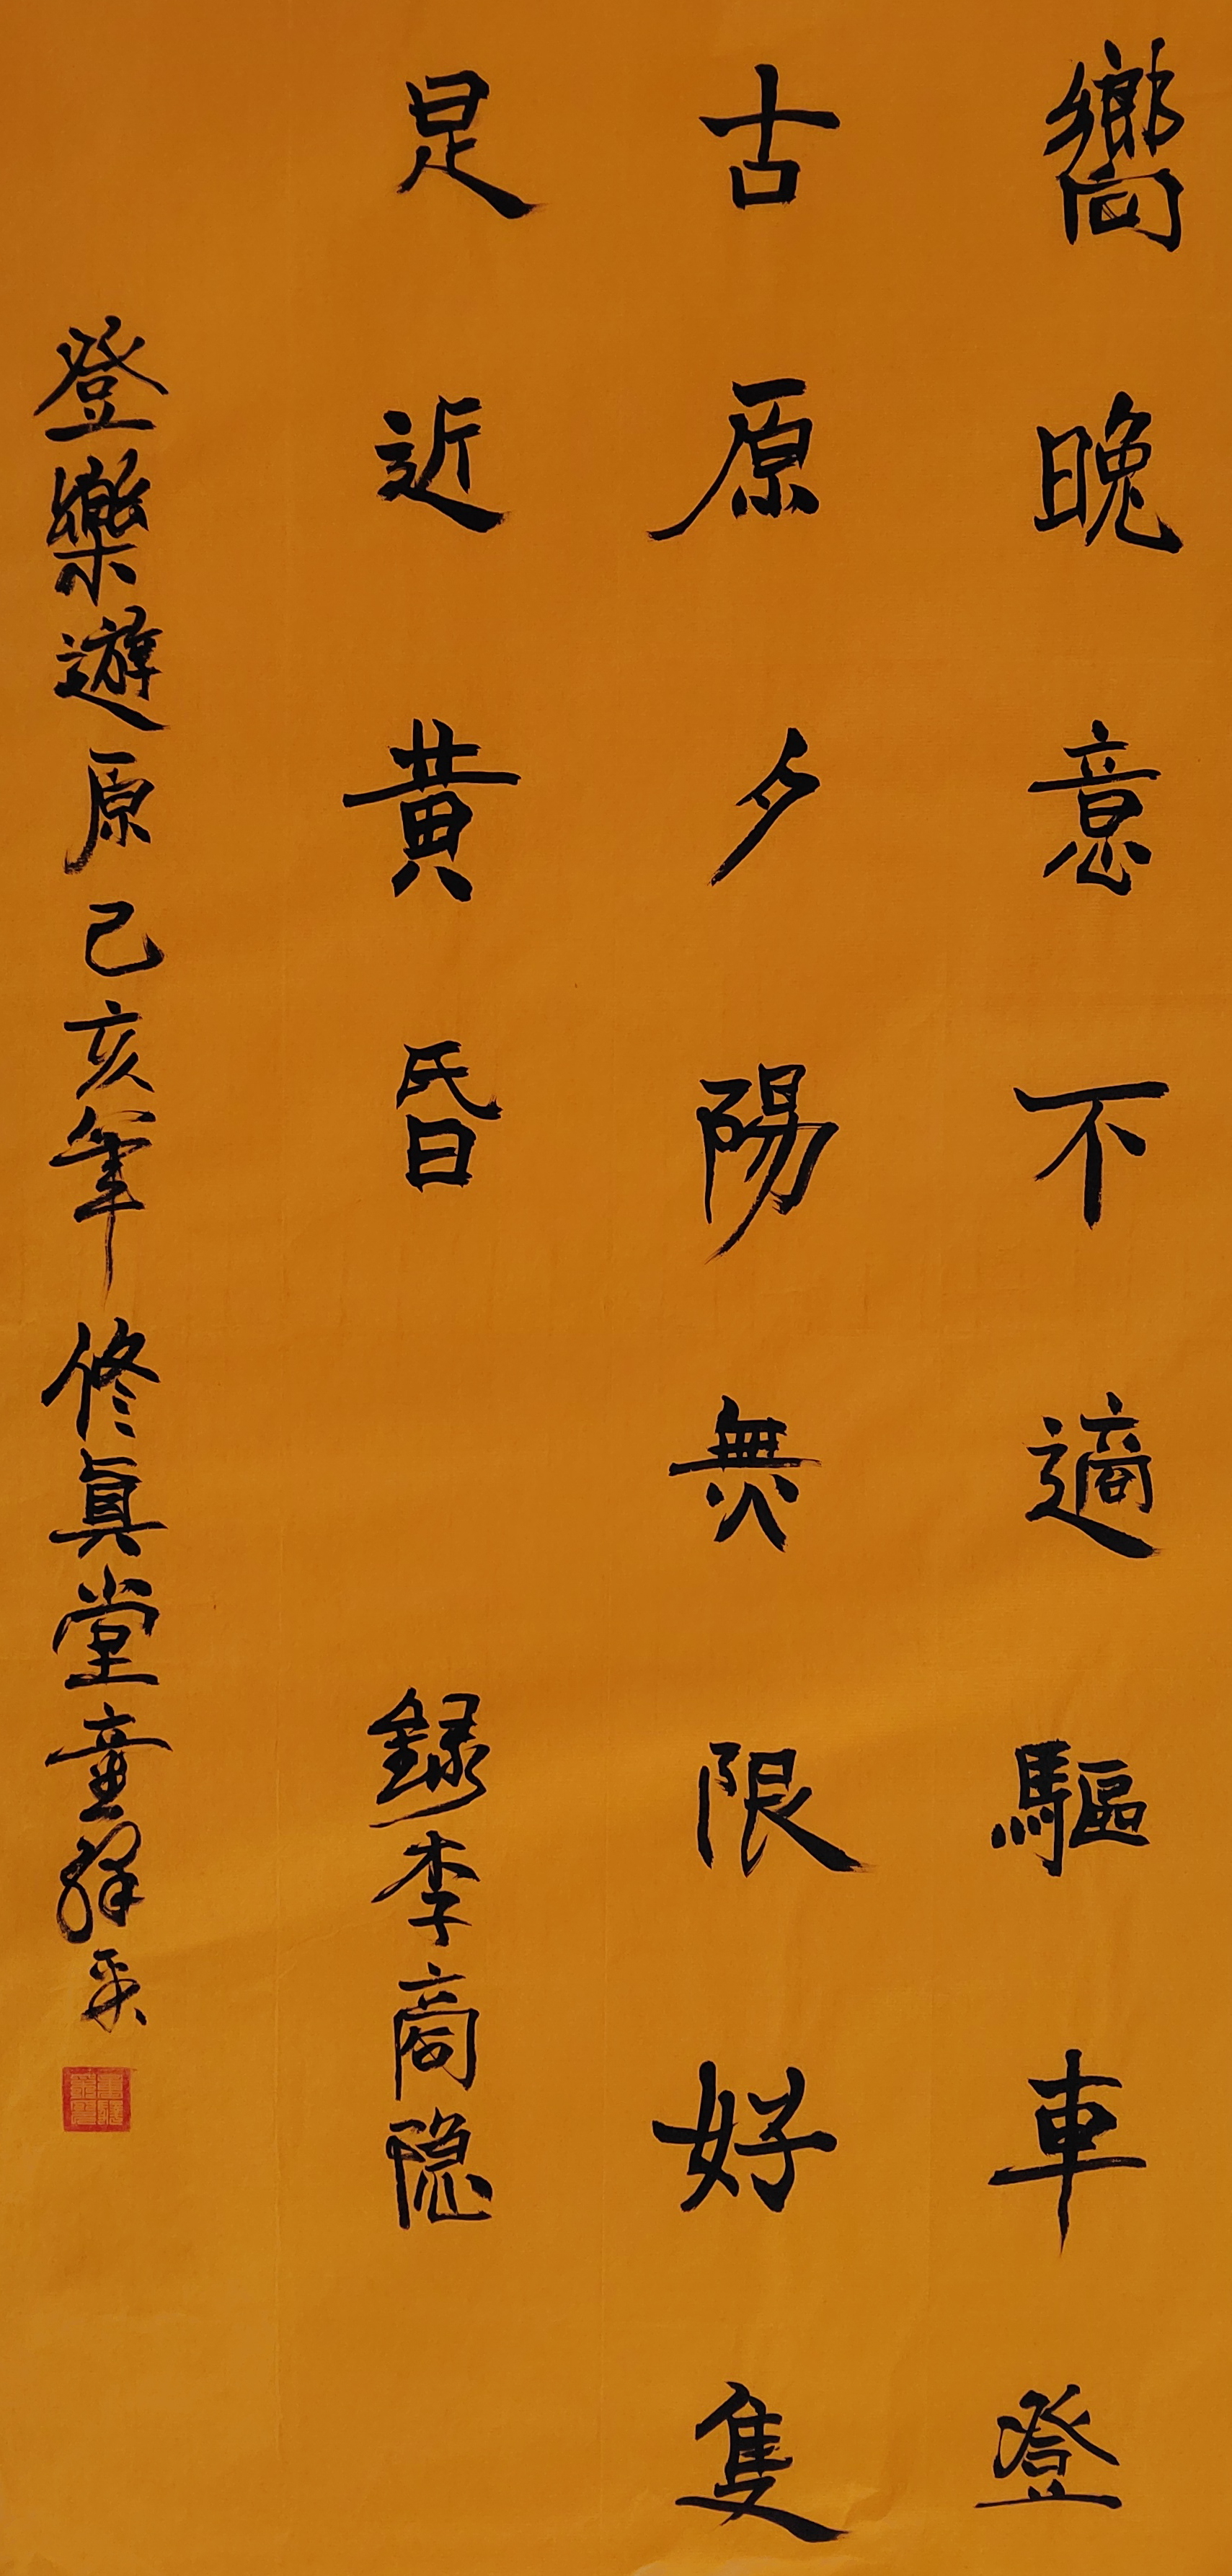 嚮晚意不適驅車登
古原夕陽無限好隻
是近黄昏
録李商隐
登樂遊原己亥年修真堂童祥平